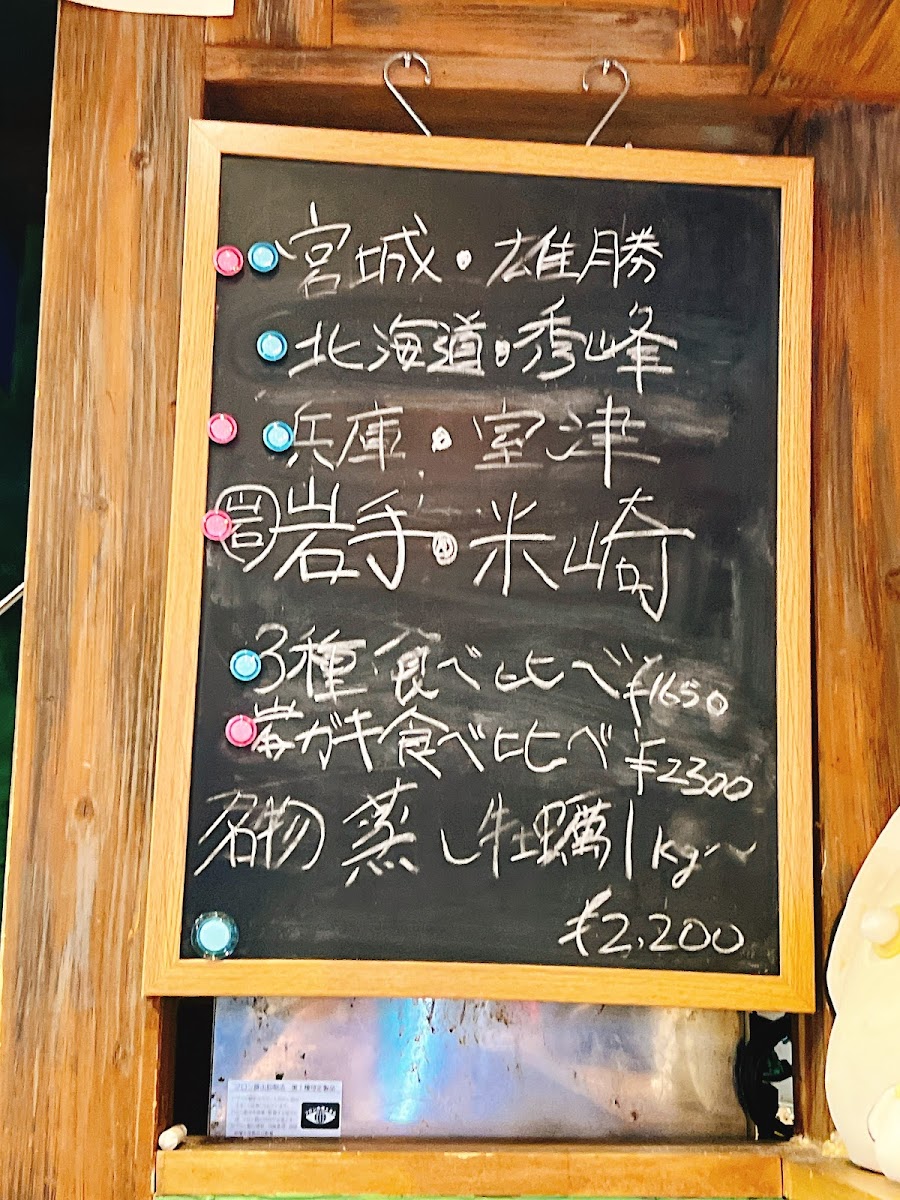 宮城・雄勝
北海道・秀峰
兵庫・室津
岩 岩手・米崎
3種食べ比べ ¥1650
岩ガキ食べ比べ ¥2300
名物 蒸し牡蠣 1kg〜
¥2,200